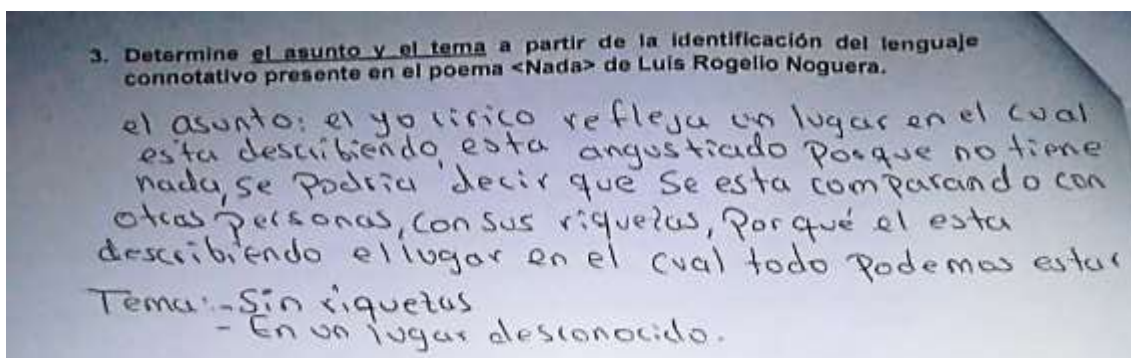 3. Determine el asunto y el tema a partir de la identificación del lenguaje
connotativo presente en el poema <Nada> de Luis Rogelio Noguera.
el asunto: el yo lirico refleja un lugar en el cual
esta describiendo, esta angustiado porque no tiene
nada, se podria decir que se esta comparando con
otras personas, con sus riquezas, porqué el esta
describiendo el lugar en el cual todo podemos estar
Tema: - Sin riquezas
- En un lugar desconocido.